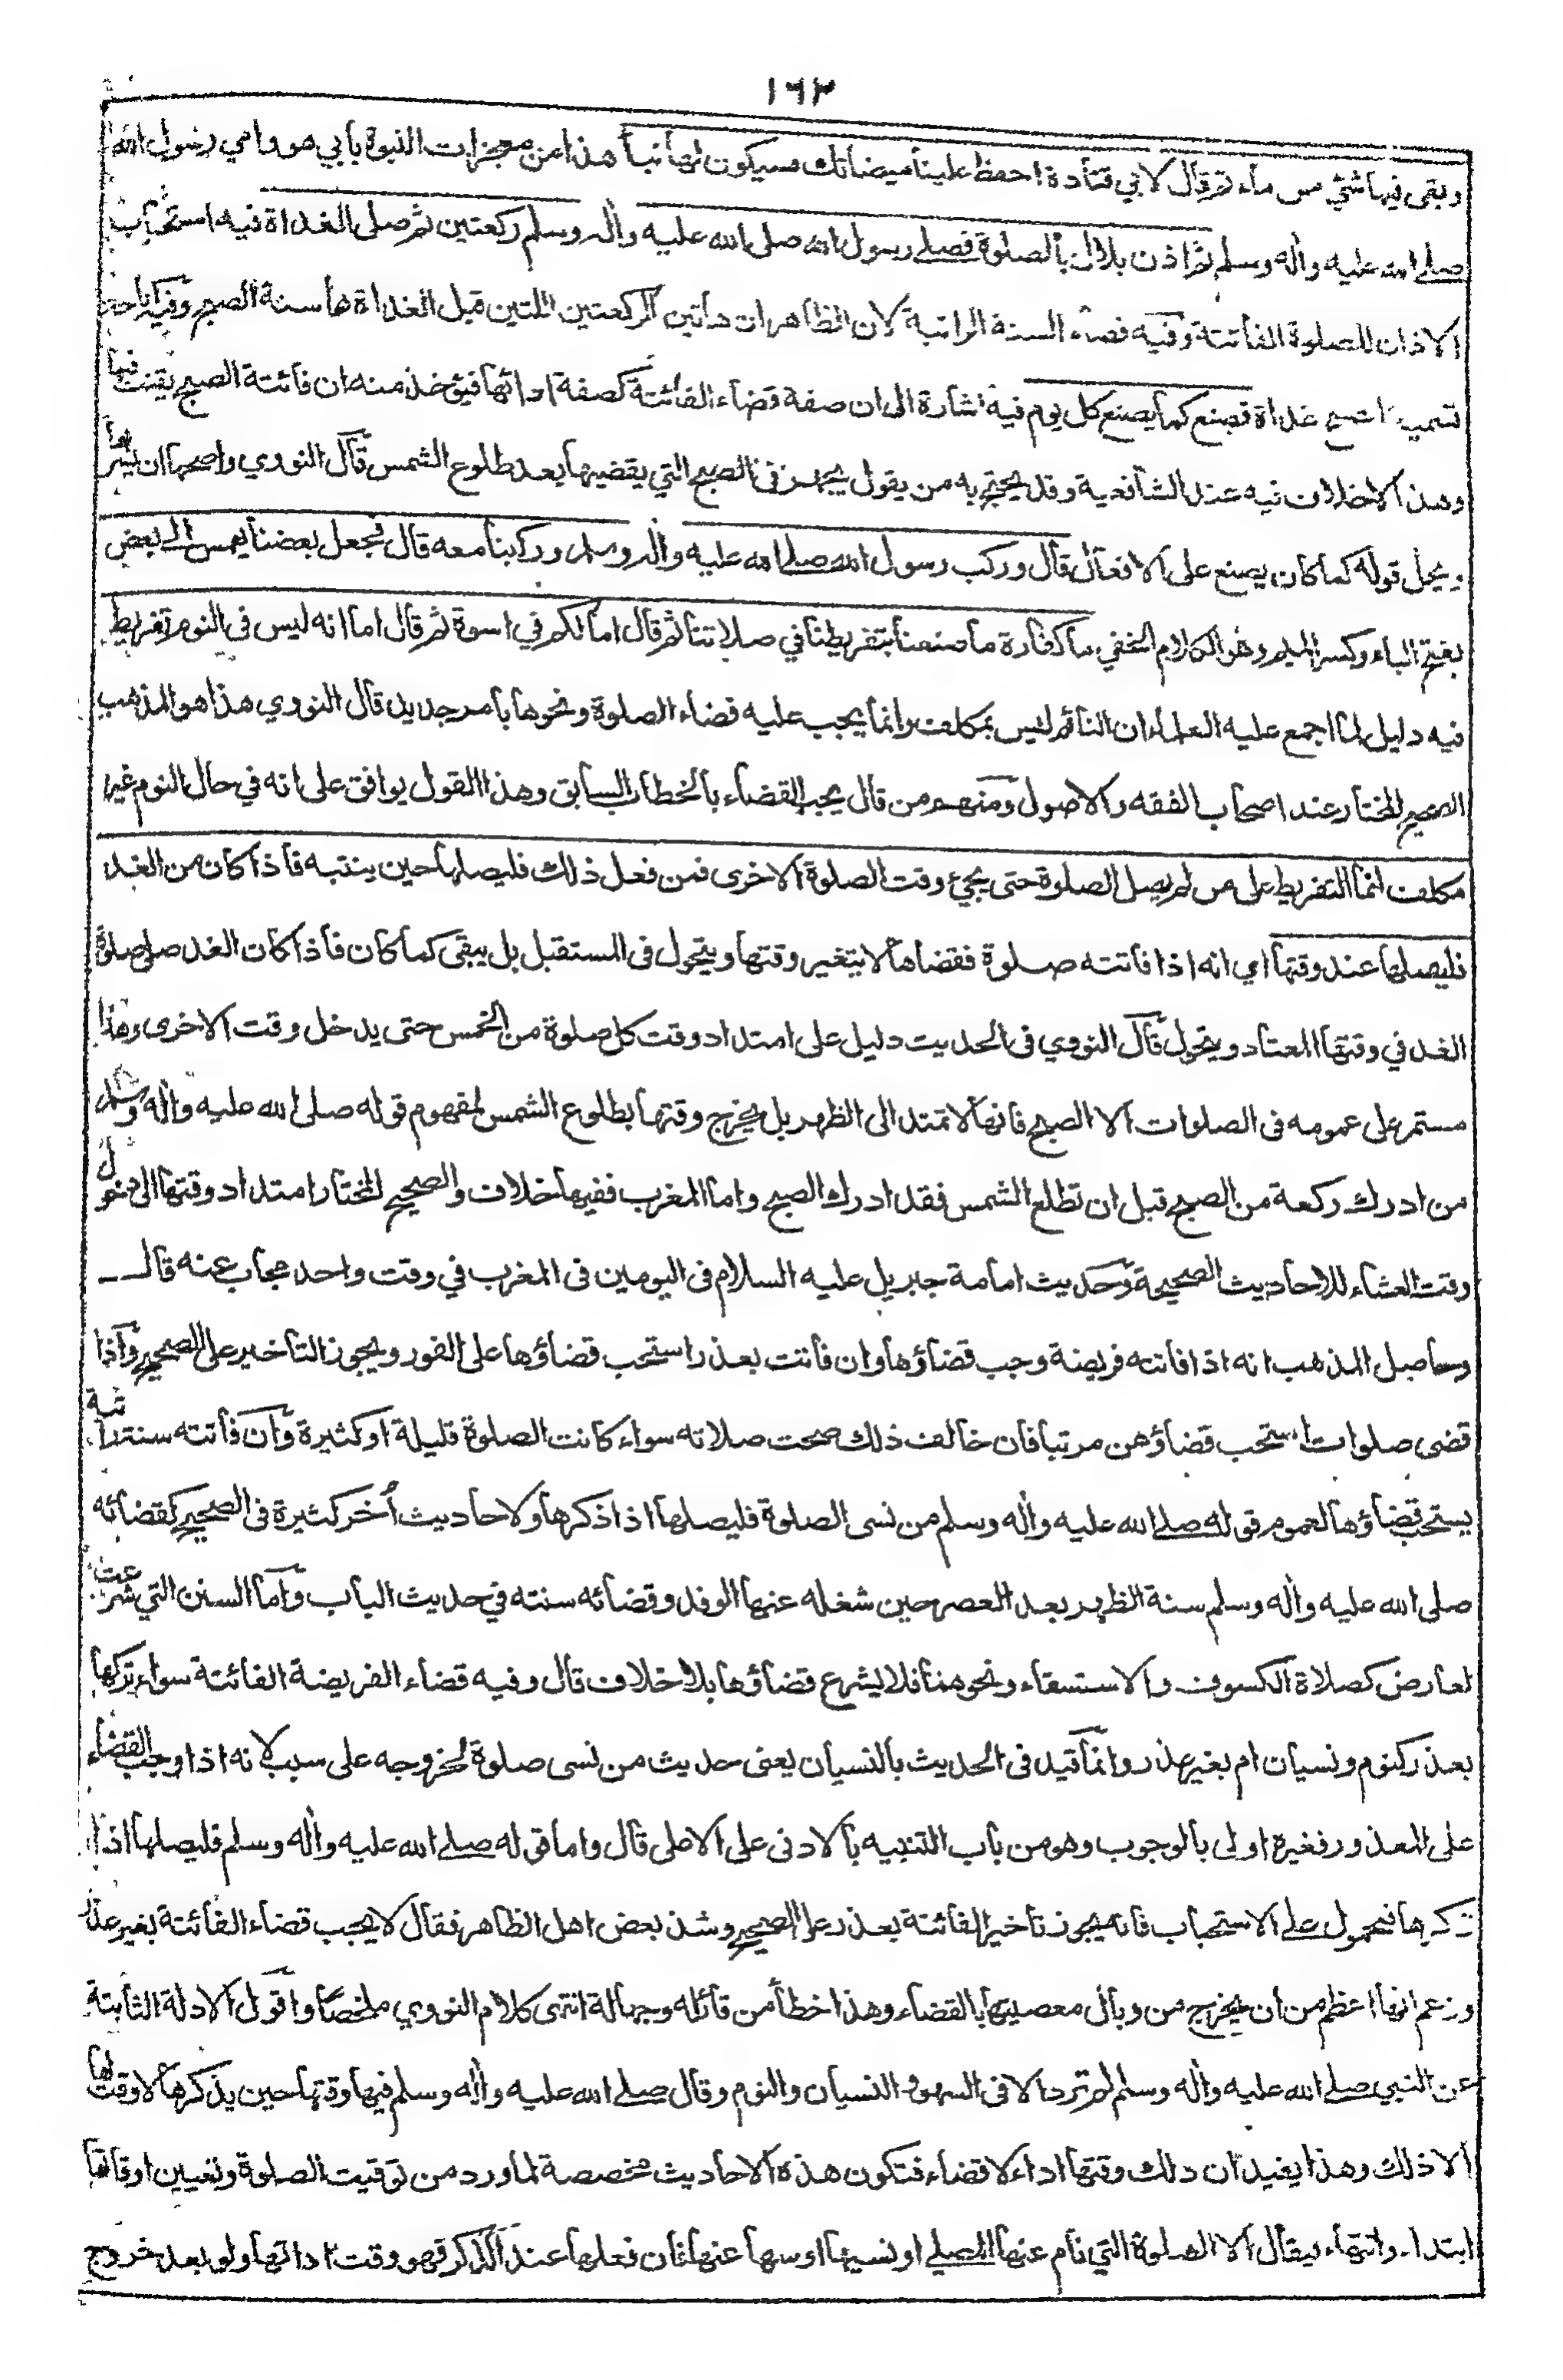 ١٦٣
وبقي فيها شئ من ماء ثم قال لابي قتادة احفظ علينا ميضأتك فسيكون لها نبأ هذا من معجزات النبوة بابي هو وامي رسول الله
صلى الله عليه واٰله وسلم ثم اذن بلال بالصلوة فصلى رسول الله صلى الله عليه واٰله وسلم ركعتين ثم صلى الغداة فيه استحباب
الاذان للصلوة الفائتة وفيه قضاء السنة الراتبة لان الظاهر ان هاتين الركعتين اللتين قبل الغداة هما سنة الصبح وفيه اباحة
تسمية الصبح غداة فصنع كما يصنع كل يوم فيه اشارة الى ان صفة قضاء الفائتة كصفة ادائها فيؤخذ منه ان فائتة الصبح يقنت فيها
وهذا لاخلاف فيه عند الشافعية وقد يحتج به من يقول يجهر في الصبح التي يقضيها بعد طلوع الشمس قال النووي واصحها ان يسر بها
ويحمل قوله كما كان يصنع على الافعال قال وركب رسول الله صلى الله عليه واٰله وسلم وركبنا معه قال فجعل بعضنا يهمس الى بعض
بفتح الياء وكسر الميم وهو الكلام الخفي ما كفارة ما صنعنا بتفريطنا في صلاتنا ثم قال اما لكم في اسوة ثم قال اما انه ليس في النوم تفريط
فيه دليل لما اجمع عليه العلماء ان النائم ليس بمكلف وانما يجب عليه قضاء الصلوة ونحوها بامر جديد قال النووي هذا هو المذهب
الصحيح المختار عند اصحاب الفقه والاصول ومنهم من قال يجب القضاء بالخطاب السابق وهذا القول يوافق على انه في حال النوم غير
مكلف انما التفريط على من لم يصل الصلوة حتى يجيء وقت الصلوة الاخرى فمن فعل ذلك فليصلها حين ينتبه فاذا كان من الغد
فليصلها عند وقتها اي انه اذا فاتته صلوة فقضاها لا يتغير وقتها ويتحول في المستقبل بل يبقى كما كان فاذا كان الغد صلى صلوة
الغد في وقتها المعتاد ويتحول قال النووي في الحديث دليل على امتداد وقت كل صلوة من الخمس حتى يدخل وقت الاخرى وهذا
مستمر على عمومه في الصلوات الا الصبح فانها لا تمتد الى الظهر بل يخرج وقتها بطلوع الشمس لمفهوم قوله صلى الله عليه واٰله وسلم
من ادرك ركعة من الصبح قبل ان تطلع الشمس فقد ادرك الصبح واما المغرب ففيها خلاف والصحيح المختار امتداد وقتها الى دخول
وقت العشاء للاحاديث الصحيحة وحديث امامة جبريل عليه السلام في اليومين في المغرب في وقت واحد مجاب عنه قال
وحاصل المذهب انه اذا فاتته فريضة وجب قضاؤها وان فاتت بعذر استحب قضاؤها على الفور ويجوز التاخير على الصحيح واذا
قضى صلوات استحب قضاؤهن مرتبا فان خالف ذلك صحت صلاته سواء كانت الصلوة قليلة او كثيرة وان فاتته سنة راتبة
يستحب قضاؤها لعموم قوله صلى الله عليه واٰله وسلم من نسى الصلوة فليصلها اذا ذكرها ولاحاديث أخر كثيرة في الصحيح كقضائه
صلى الله عليه واٰله وسلم سنة الظهر بعد العصر حين شغله عنها الوفد وقضائه سنته في حديث الباب واما السنن التي شرعت
لعارض كصلاة الكسوف والاستسقاء ونحوهما فلا يشرع قضاؤها بلا خلاف قال وفيه قضاء الفريضة الفائتة سواء تركها
بعذر كنوم ونسيان ام بغير عذر وانما قيد في الحديث بالنسيان يعني حديث من نسى صلوة لخروجه على سبب لانه اذا وجب القضاء
على المعذور فغيره اولى بالوجوب وهو من باب التنبيه بالادنى على الاعلى قال واما قوله صلى الله عليه واٰله وسلم فليصلها اذا
ذكرها فمحمول على الاستحباب فانه يجوز تاخير الفائتة بعذر على الصحيح وشذ بعض اهل الظاهر فقال لا يجب قضاء الفائتة بغير عذر
وزعم انها اعظم من ان يخرج من وبال معصيتها بالقضاء وهذا خطأ من قائله وجهالة انتهى كلام النووي ملخصًا واقول الادلة الثابتة
عن النبي صلى الله عليه واٰله وسلم لم ترد الا في السهو والنسيان والنوم وقال صلى الله عليه واٰله وسلم فيها وقتها حين يذكرها لا وقت لها
الا ذلك وهذا يفيد ان ذلك وقتها اداء لا قضاء فتكون هذه الاحاديث مخصصة لما ورد من توقيت الصلوة وتعيين اوقاتها
ابتداء وانتهاء فيقال الا الصلوة التي نام عنها المصلي او نسيها او سها عنها فان فعلها عند الذكر فهو وقت ادائها ولو بعد خروج